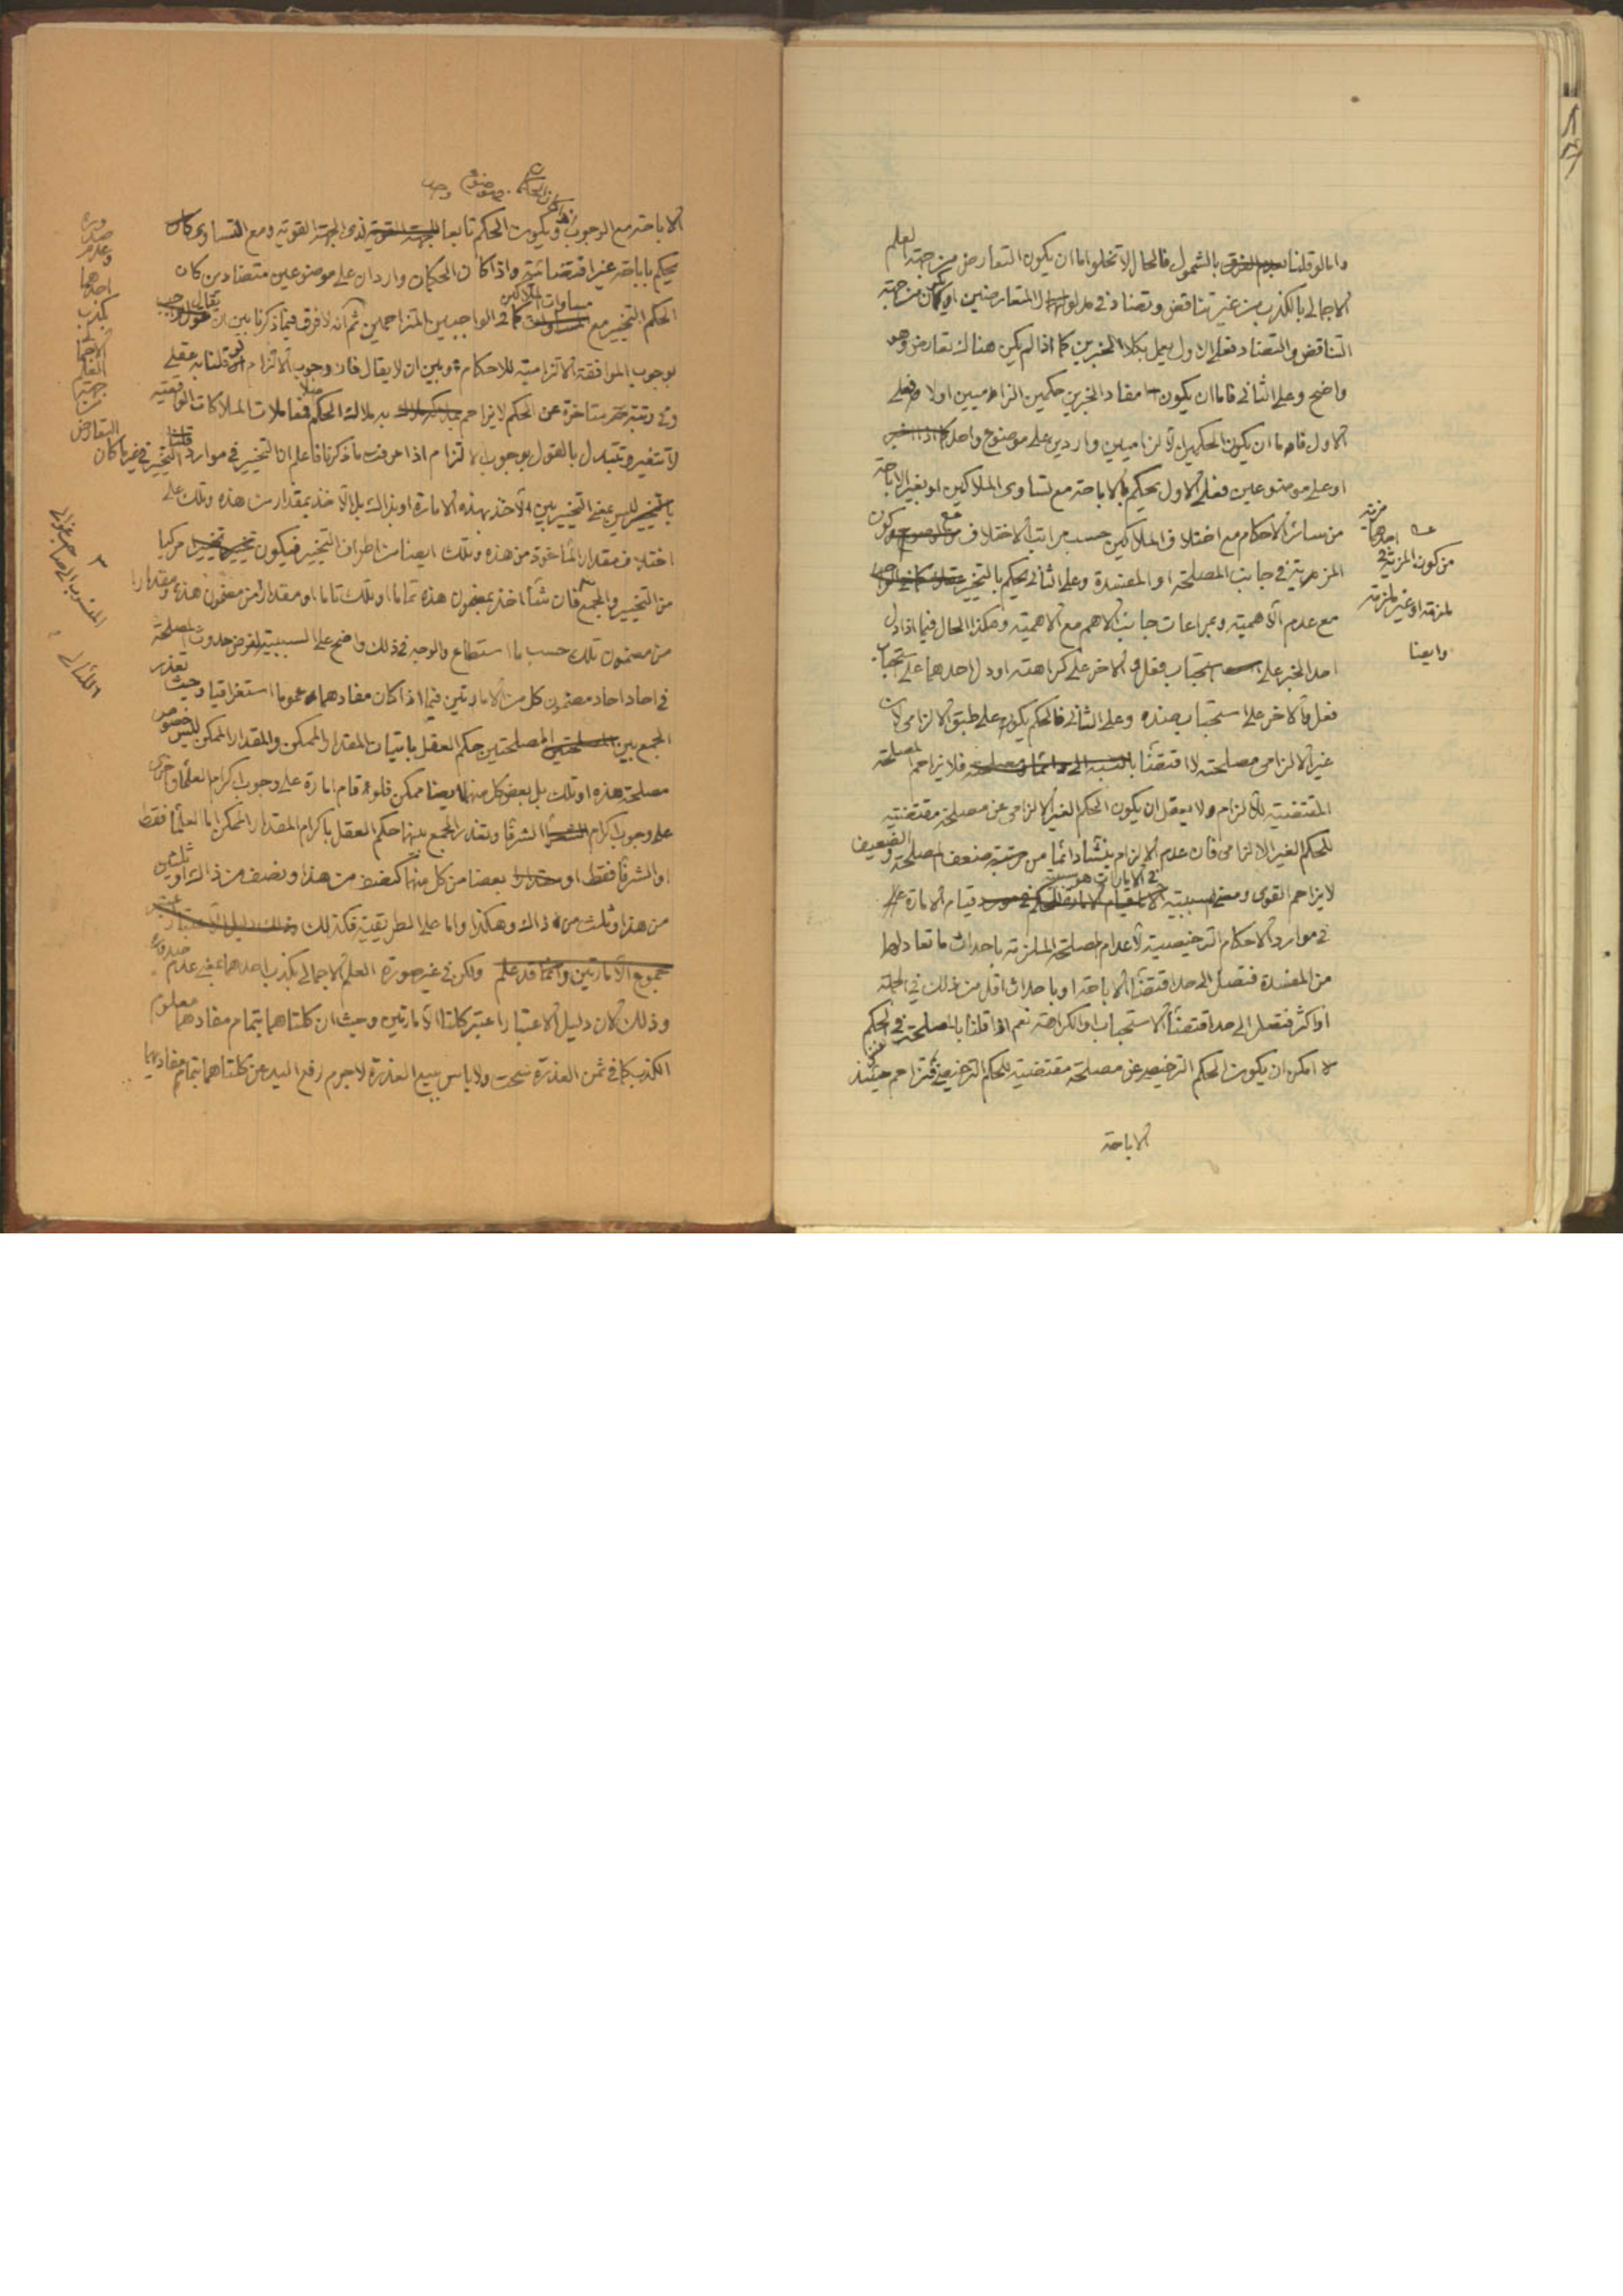 واما لو قلنا بالشمول فالحال لا تخلوا اما ان يكون التعارض من جهة العلم
الاجمالي بالكذب من غير تناقض وتضاد في مدلول المتعارضين او كان من جهة
التناقض والتضاد فعلى الاول يعمل بكلا الخبرين كما اذا لم يكن هناك تعارض وهو
واضح وعلى الثاني فاما ان يكون مفاد الخبرين حكمين الزاميين اولا فعلى
الاول فاما ان يكون الحكمين الالزاميين واردين على موضوع واحد
او على موضوعين فعلى الاول يحكم بالاباحة مع تساوى الملاكين او بغير الاباحة
من سائر الاحكام مع اختلاف الملاكين حسب مراتب الاختلاف مع كون
المزية في جانب المصلحة او المفسدة وعلى الثاني يحكم بالتخيير
مع عدم الاهمية وبمراعات جانب الاهم مع الاهمية وهكذا الحال فيما اذا دل
احد الخبر على استحباب فعل والاخر على كراهته او دل احدهما على استحباب
فعل والاخر على استحباب ضده وعلى الثاني فالحكم يكون على طبق الالزامى لان
غير الالزامى مصلحته لا اقتضاء فلا يزاحم المصلحة
المقتضية للالزام ولا يعقل ان يكون الحكم الغير الالزامى عن مصلحة مقتضية
للحكم الغير الالزامى فان عدم الالزام ينشأ دائما من مرتبة ضعف المصلحة والضعيف
لا يزاحم القوى ومعنى سببية قيام الامارة
في موارد الاحكام الترخيصية لاعدام المصلحة الملزمة باحداث ما تعادلها
من المفسدة فتصل الى حد اقتضاء الاباحة او باحداث اقل من ذلك في الجملة
او اكثر فتصل الى حد اقتضاء الاستحباب او الكراهة نعم اذا قلنا بالمصلحة في الحكم
لا امكن ان يكون الحكم الترخيصى عن مصلحة مقتضية للحكم الترخيصى فتزاحم حينئذ
الاباحة
من كون المزية
ملزمة او غير ملزمة
وايضا
الاباحة مع الوجوب ويكون الحكم تابعا لذى الجهة القوية ومع التساوى
يحكم باباحة غير اقتضائية واذا كان الحكمان واردان على موضوعين متضادين كان
الحكم التخيير مع مساوات الملاكين كما في الواجبين المتزاحمين ثم انه لا فرق فيما ذكرنا بين ان يقال
بوجوب الموافقة الالتزامية للاحكام وبين ان لا يقال فان وجوب الالتزام لو قلنا به عقلى
وفي رتبة متاخرة عن الحكم لا يزاحم به ملاك الحكم فمعاملات الملاكات الواقعية
لا تتغير وتتبدل بالقول بوجوب الالتزام اذا عرفت ما ذكرنا فاعلم ان التخيير في موارد قلنا
بالتخيير ليس بمعنى التخيير بين الاخذ بهذه الامارة او بذاك بل الاخذ بمقدار من هذه وتلك على
اختلاف مقدار المأخوذ من هذه وتلك ايضا من اطراف التخيير فيكون مركبا
من التخيير والجمع فان شاء اخذ بمضمون هذه تماما او تلك تاما او مقدار من مضمون هذه ومقدارا
من مضمون تلك حسب ما استطاع والوجه في ذلك واضح على السببية لفرض حدوث المصلحة
في احاد احاد مضمون كل من الامارتين فيما اذا كان مفادهما عموما استغراقيا وحيث تعذر
الجمع بين المصلحتين حكم العقل باتيان المقدار الممكن والمقدار الممكن ليس خصوص
مصلحة هذه او تلك بل بعض كل منهما ايضا ممكن فلو قام امارة على وجوب اكرام العلماء واخرى
على وجوب اكرام الشرفاء وتعذر الجمع بينهما حكم العقل باكرام المقدار الممكن اما العلماء فقط
او الشرفاء فقط او بعضا من كل منهما كنصف من هذا ونصف من ذاك او ثلثين
من هذا وثلث من ذاك وهكذا واما على الطريقية فكذلك
ولكن في غير صورة العلم الاجمالي بكذب احدهما بمعنى عدم صدوره
وذلك لان دليل الاعتبار اعتبر كلتا الامارتين وحيث ان كلتاهما بتمام مفادهما معلوم
الكذب كما في ثمن العذرة سحت ولا باس ببيع العذرة لاجرم رفع اليد عن كلتاهما بتمام مفادهما
التعارض
من
جهة
العلم
الاجمالي
بكذب
احدهما
وعدم
صدوره